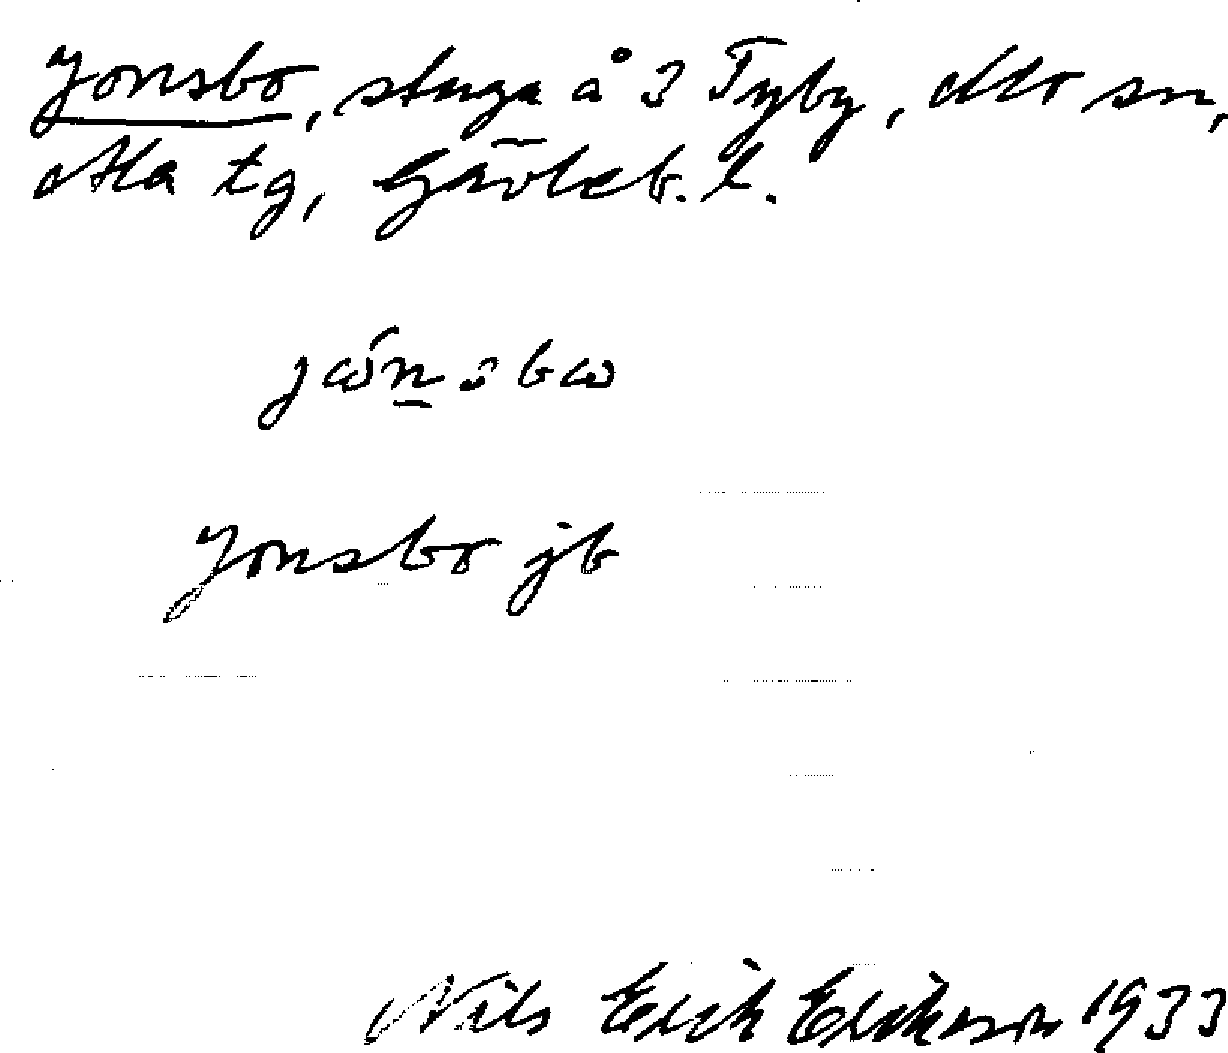 Jonsbo, stuga å 3 Tyby, Alfta sn,
Ala tg, Gävleb. l.
jώn̲sbω
Jonsbo jb
Nils Erik Eriksson 1933